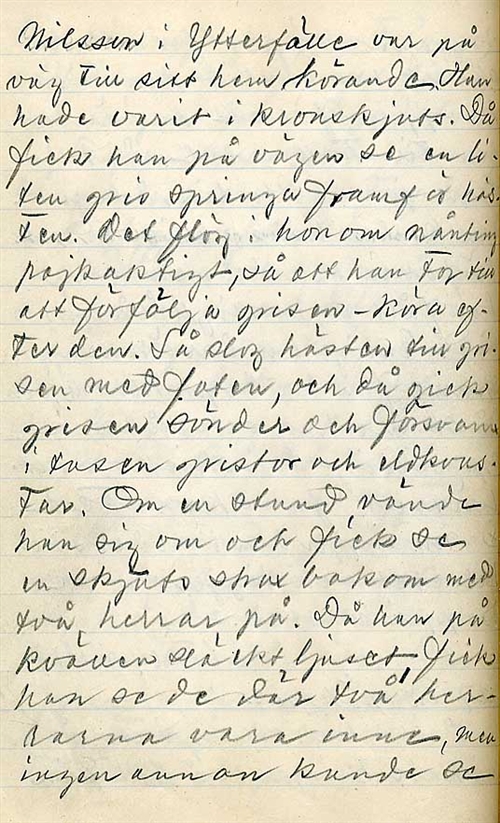 Nilsson i Ytterfälle var på
väg till sitt hem körande. Han
hade varit i kronskjuts. Då
fick han på vägen se en li-
ten gris springa framför häs-
ten. Det flög i honom nånting
pojkaktigt, så att han tog till
att förfölja grisen – köra ef-
ter den. Så slog hästen till gri-
sen med foten, och då gick
grisen sönder och försvann
i tusen gnistor och eldkvas-
tar. Om en stund vände
han sig om och fick se
en skjuts strax bakom med
två herrar på. Då han på
kvällen släckt ljuset, fick
han se de där två her-
rarna vara inne, men
ingen annan kunde se